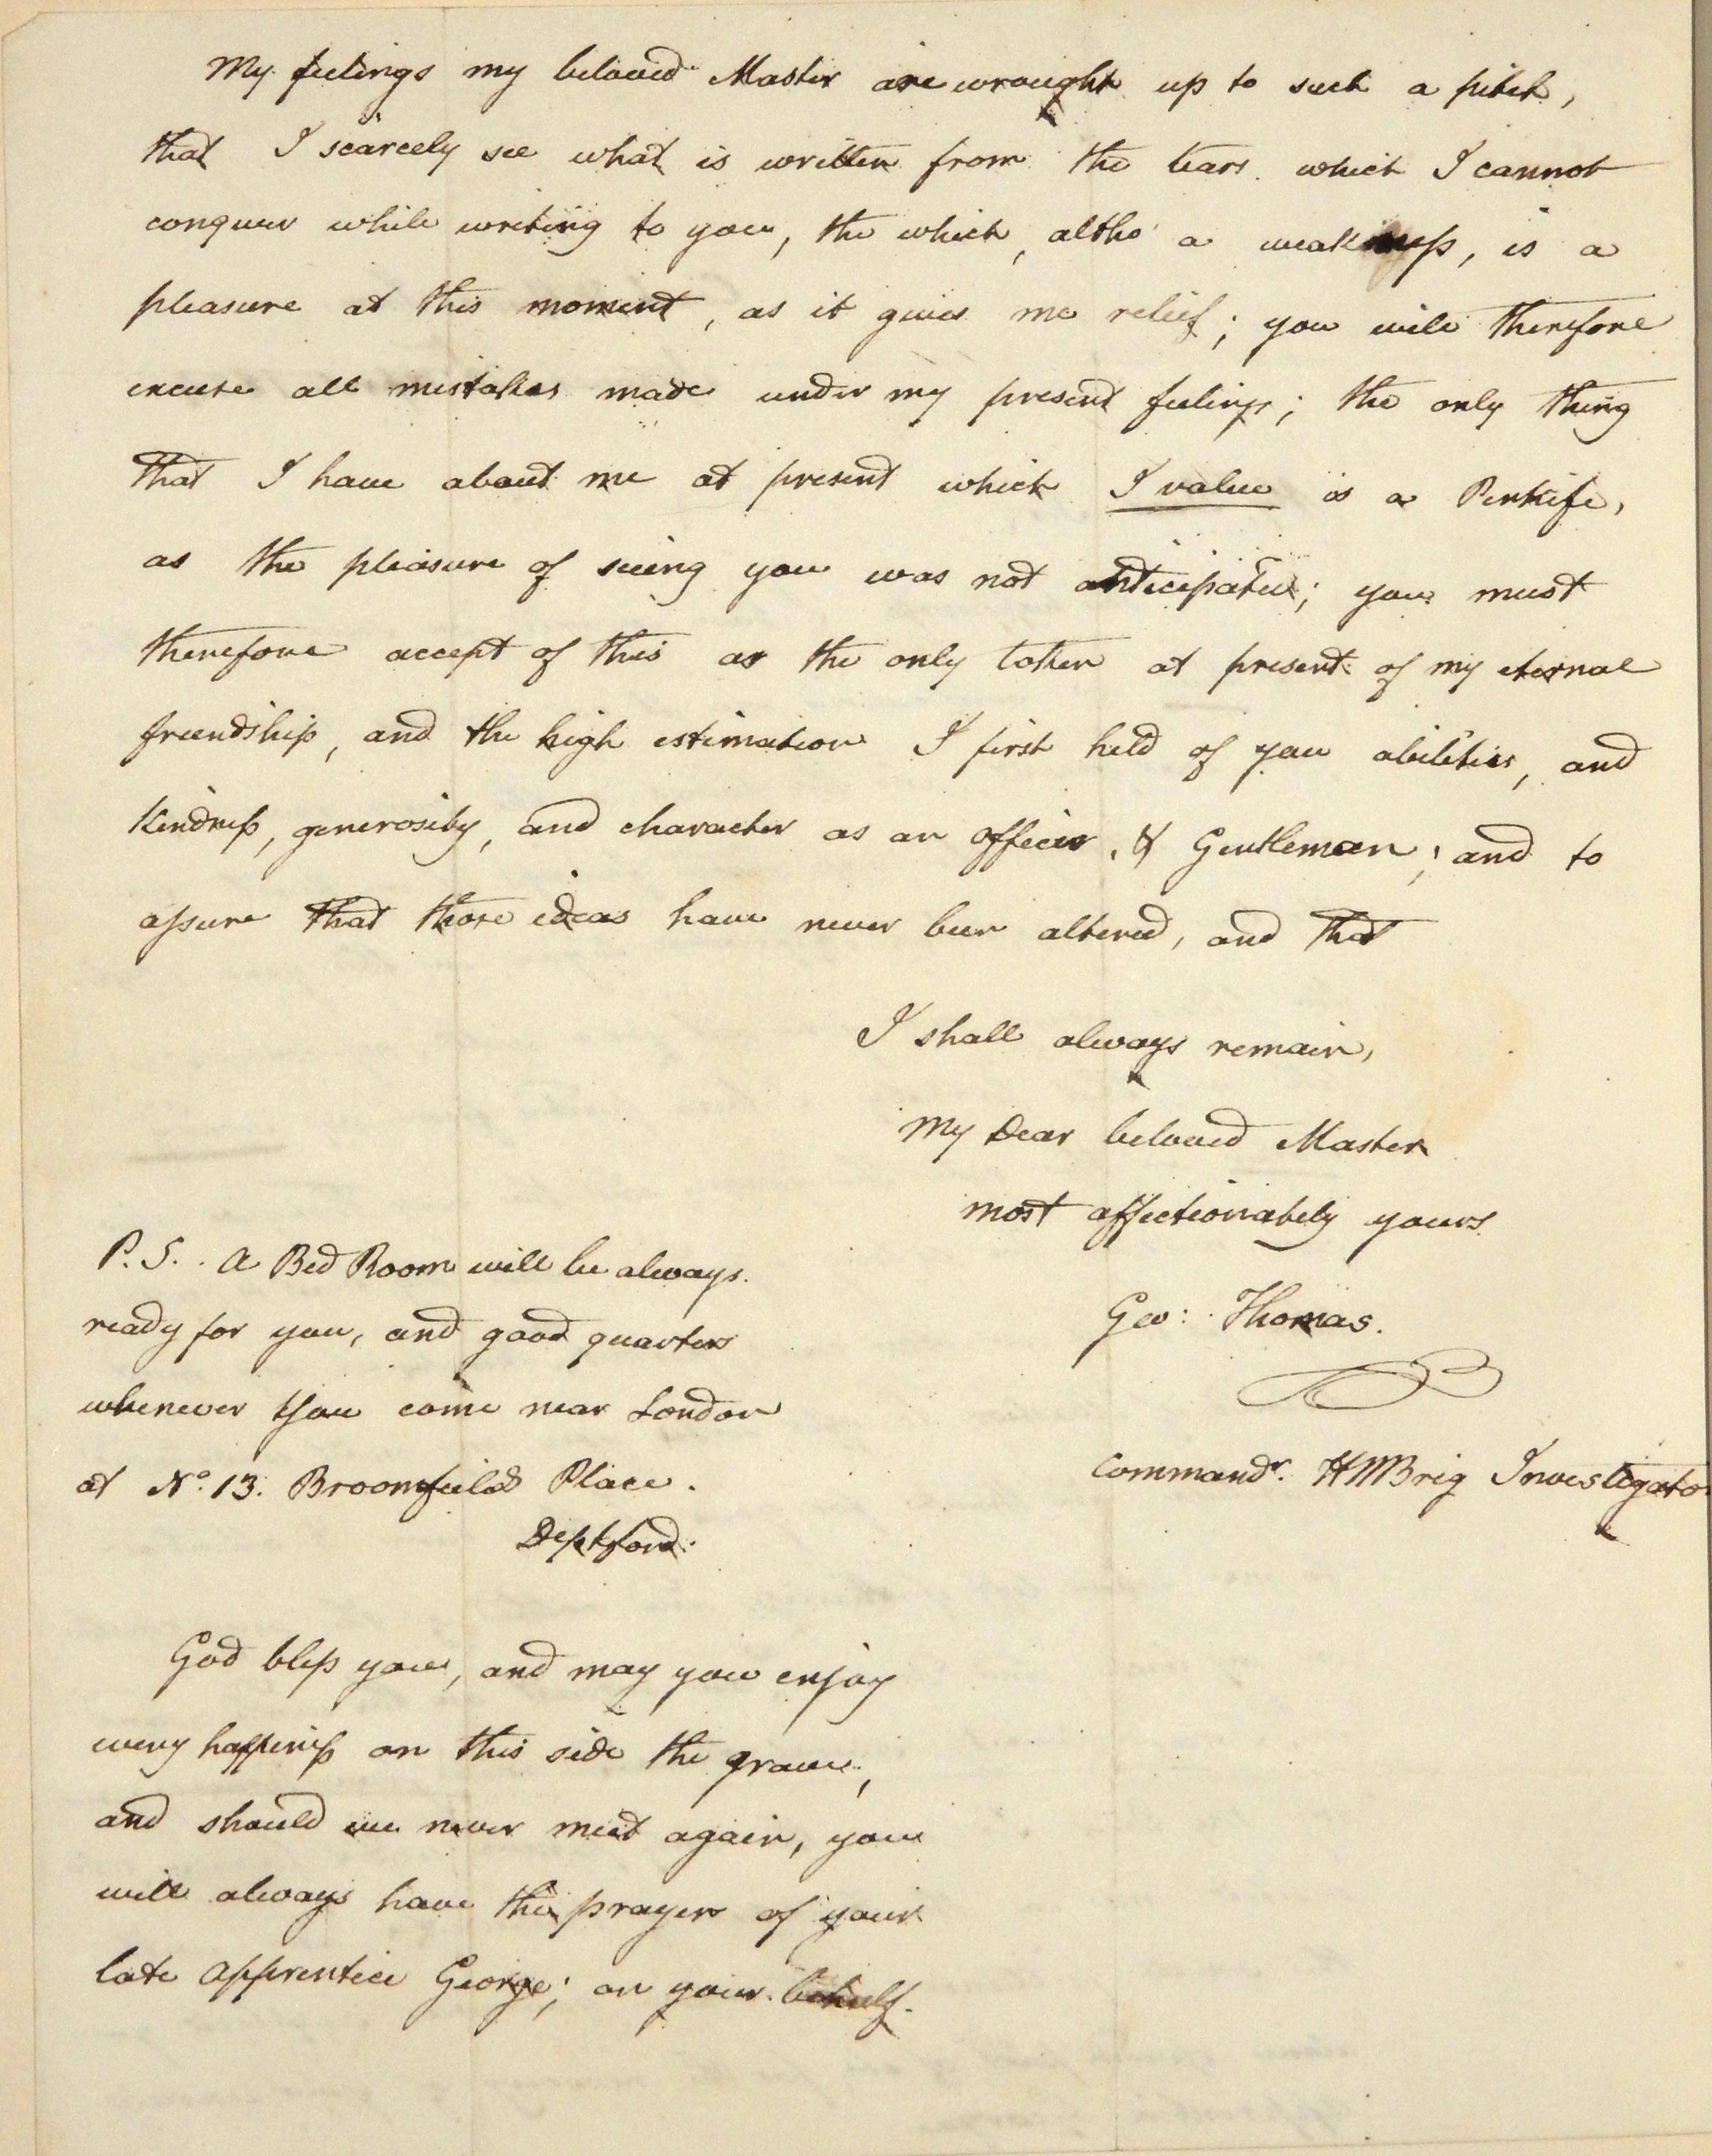 My feelings my beloved Master are wrought up to such a pitch,
that I scarcely see what is written from the tears which I cannot
conquer while writing to you, the which, altho' a weakness, is a
pleasure at this moment, as it gives me relief; you will therefore
excuse all mistakes made under my present feelings; the only thing
that I have about me at present which I value is a Penkife,
as the pleasure of seeing you was not anticipated; you must
therefore accept of this as the only token at present of my eternal
friendship, and the high estimation I first held of you abilities, and
Kindness, generosity, and character as an officer, & Gentleman; and to
assure that those ideas have never been altered, and that
I shall always remain,
My Dear beloved Master
most affectionately yours
Geo: Thomas.
Commandr. HMBrig Investigator
P.S. A Bed Room will be always
ready for you, and good quarters
whenever you come near London
at No. 13. Broomfield Place.
Deptford.
God bless you, and may you enjoy
every happiness on this side the grave,
and should we never meet again, you
will always have the prayers of your
late apprentice George; on your behalf.